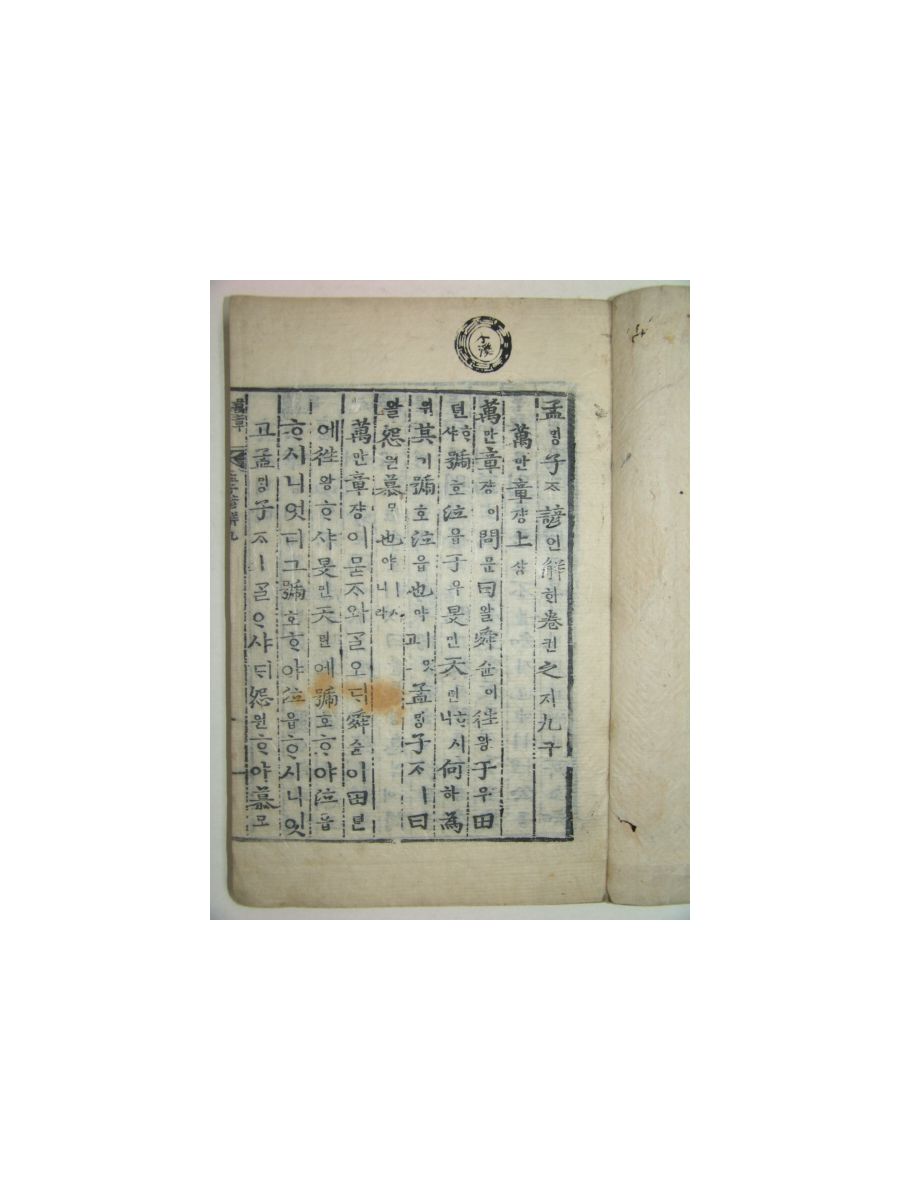 孟ᄆᆡᆼ子ᄌᆞ諺언解ᄒᆡ卷권之지九구
萬만章쟝上샹
萬만章쟝이問문曰왈舜슌이往왕于우田
뎐ᄒᆞ샤號호泣읍于우旻민天텬ᄒᆞ시니何하爲
위其기號호泣읍也야ㅣ잇고孟ᄆᆡᆼ子ᄌᆞㅣ曰
왈怨원慕모也야ㅣ시니라
萬만章쟝이묻ᄌᆞ와ᄀᆞᆯ오ᄃᆡ舜슌이田뎐
에往왕ᄒᆞ샤旻민天텬에號호ᄒᆞ야泣읍
ᄒᆞ시니엇디그號호ᄒᆞ야泣읍ᄒᆞ시니잇
고孟ᄆᆡᆼ子ᄌᆞㅣᄀᆞᆯᄋᆞ샤ᄃᆡ怨원ᄒᆞ야慕모